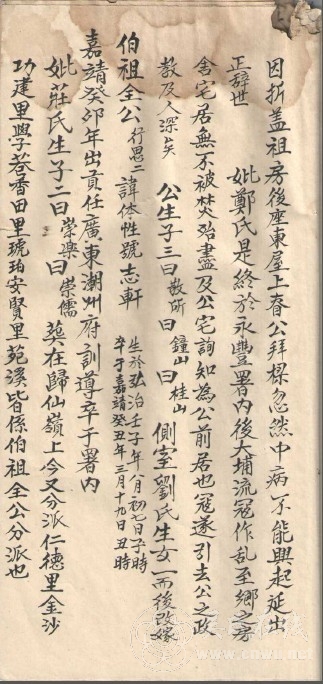 因折盖祖房後座東屋上春公拜樑忽然中病不能興起延出
正辞世
妣鄭氏是終於永豐署內後大埔流寇作乱至鄉之房
舍宅居無不被焚殆盡及公宅詢知為公前居也寇遂引去公之政
教及人深矣 公生子三曰敬所曰鐘山曰桂山 側室劉氏生女一而後改嫁
伯祖全公行思二 諱体性號志軒 生於弘治壬子年八月初七日子時
卒于嘉靖癸丑年三月十九日丑時
嘉靖癸卯年出貢任廣東潮州府訓導卒于署內
妣莊氏生子二曰崇樂曰崇儒 葬在歸仙嶺上今又分派仁德里金沙
功建里學巷香田里琥珀安賢里苑溪皆係伯祖全公分派也
www.cnwu.net